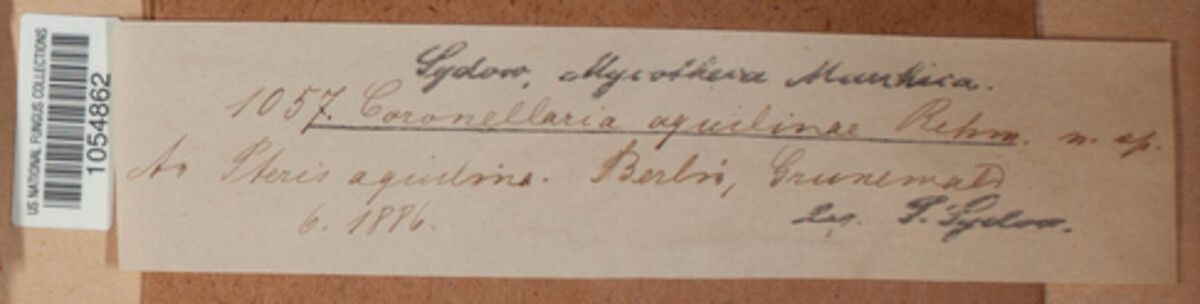 US NATIONAL FUNGUS COLLECTIONS
1054862
Sydow, Mycotheca Marchica.
1057. Coronellaria aquilinae Rehm. n. sp.
An Pteris aquilina. Berlin, Grunewald
6. 1886.
leg. P. Sydow.